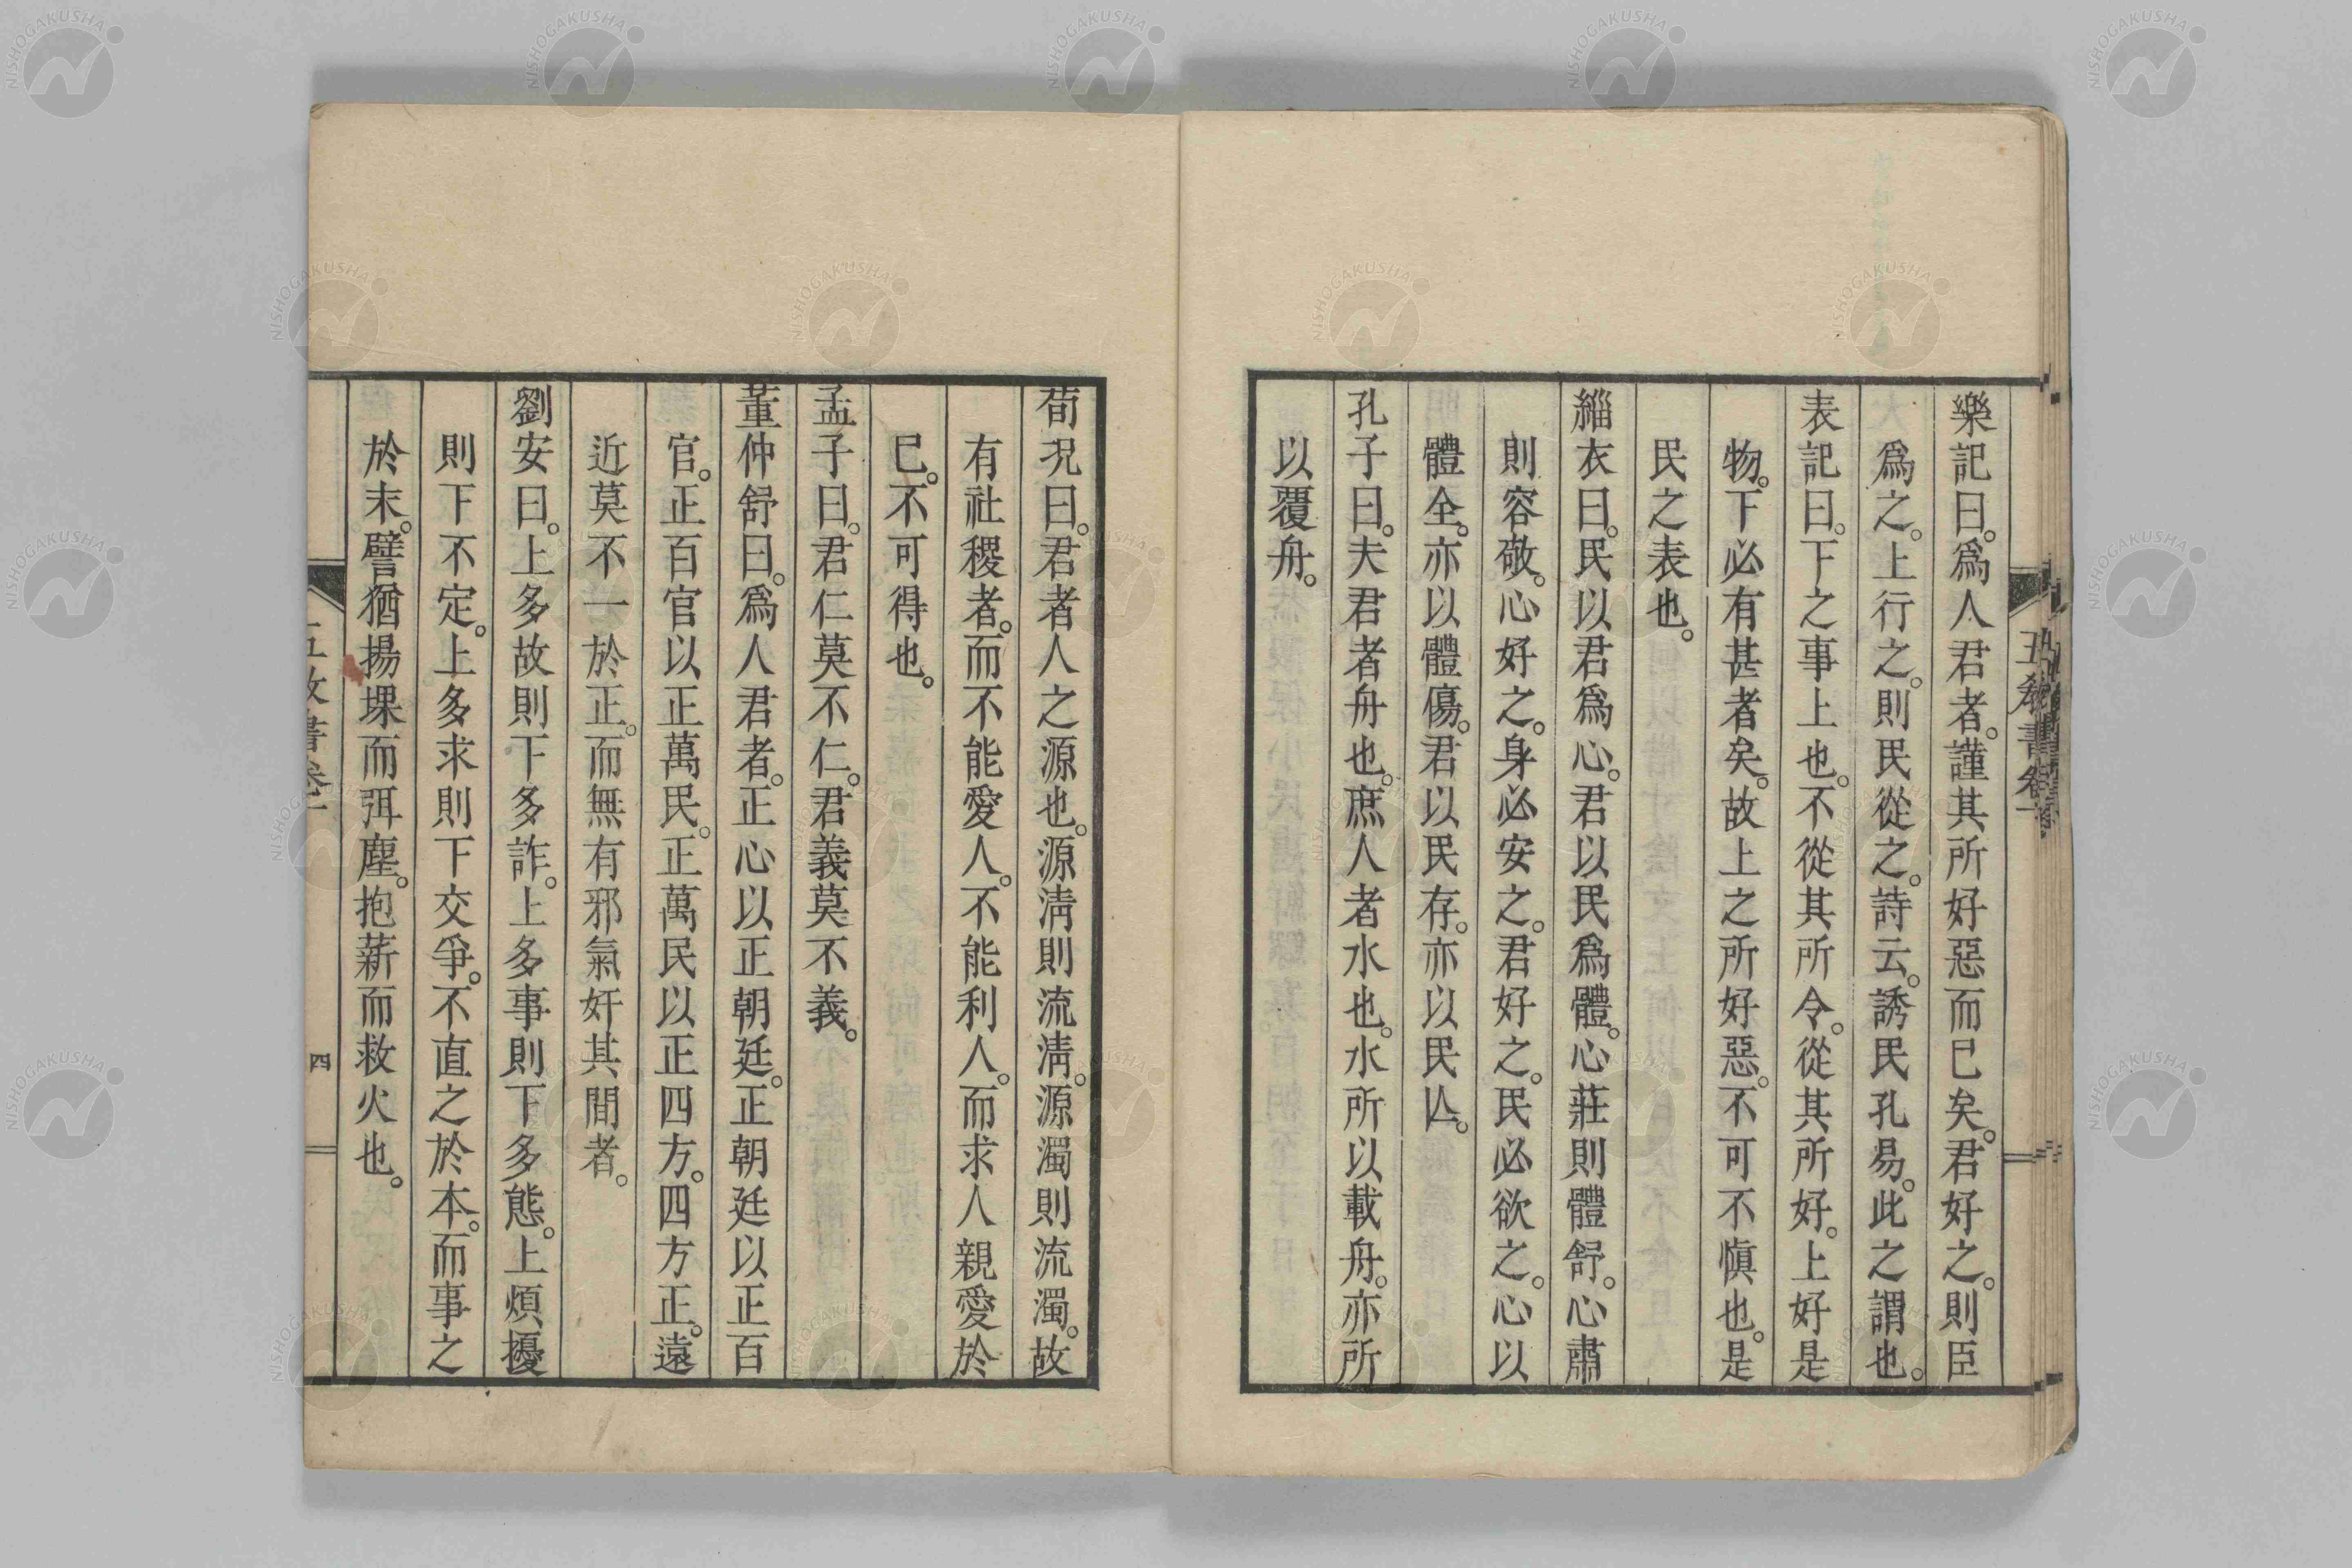 樂記曰。爲人君者。謹其所好惡而已矣。君好之。則臣
爲之。上行之。則民從之。詩云。誘民孔易。此之謂也。
表記曰。下之事上也。不從其所令。從其所好。上好是
物。下必有甚者矣。故上之所好惡。不可不愼也。是
民之表也。
緇衣曰。民以君爲心。君以民爲體。心莊則體舒。心肅
則容敬。心好之。身必安之。君好之。民必欲之。心以
體全。亦以體傷。君以民存。亦以民亾。
孔子曰。夫君者舟也。庶人者水也。水所以載舟。亦所
以覆舟。
荀況曰。君者人之源也。源淸則流淸。源濁則流濁。故
有社稷者。而不能愛人。不能利人。而求人親愛於
已。不可得也。
孟子曰。君仁莫不仁。君義莫不義。
董仲舒曰。爲人君者。正心以正朝廷。正朝廷以正百
官。正百官以正萬民。正萬民以正四方。四方正。遠
近莫不一於正。而無有邪氣奸其間者。
劉安曰。上多故則下多詐。上多事則下多態。上煩擾
則下不定。上多求則下交爭。不直之於本。而事之
於末。譬猶揚堁而弭塵。抱薪而救火也。
四
NISHOGAKUSHA